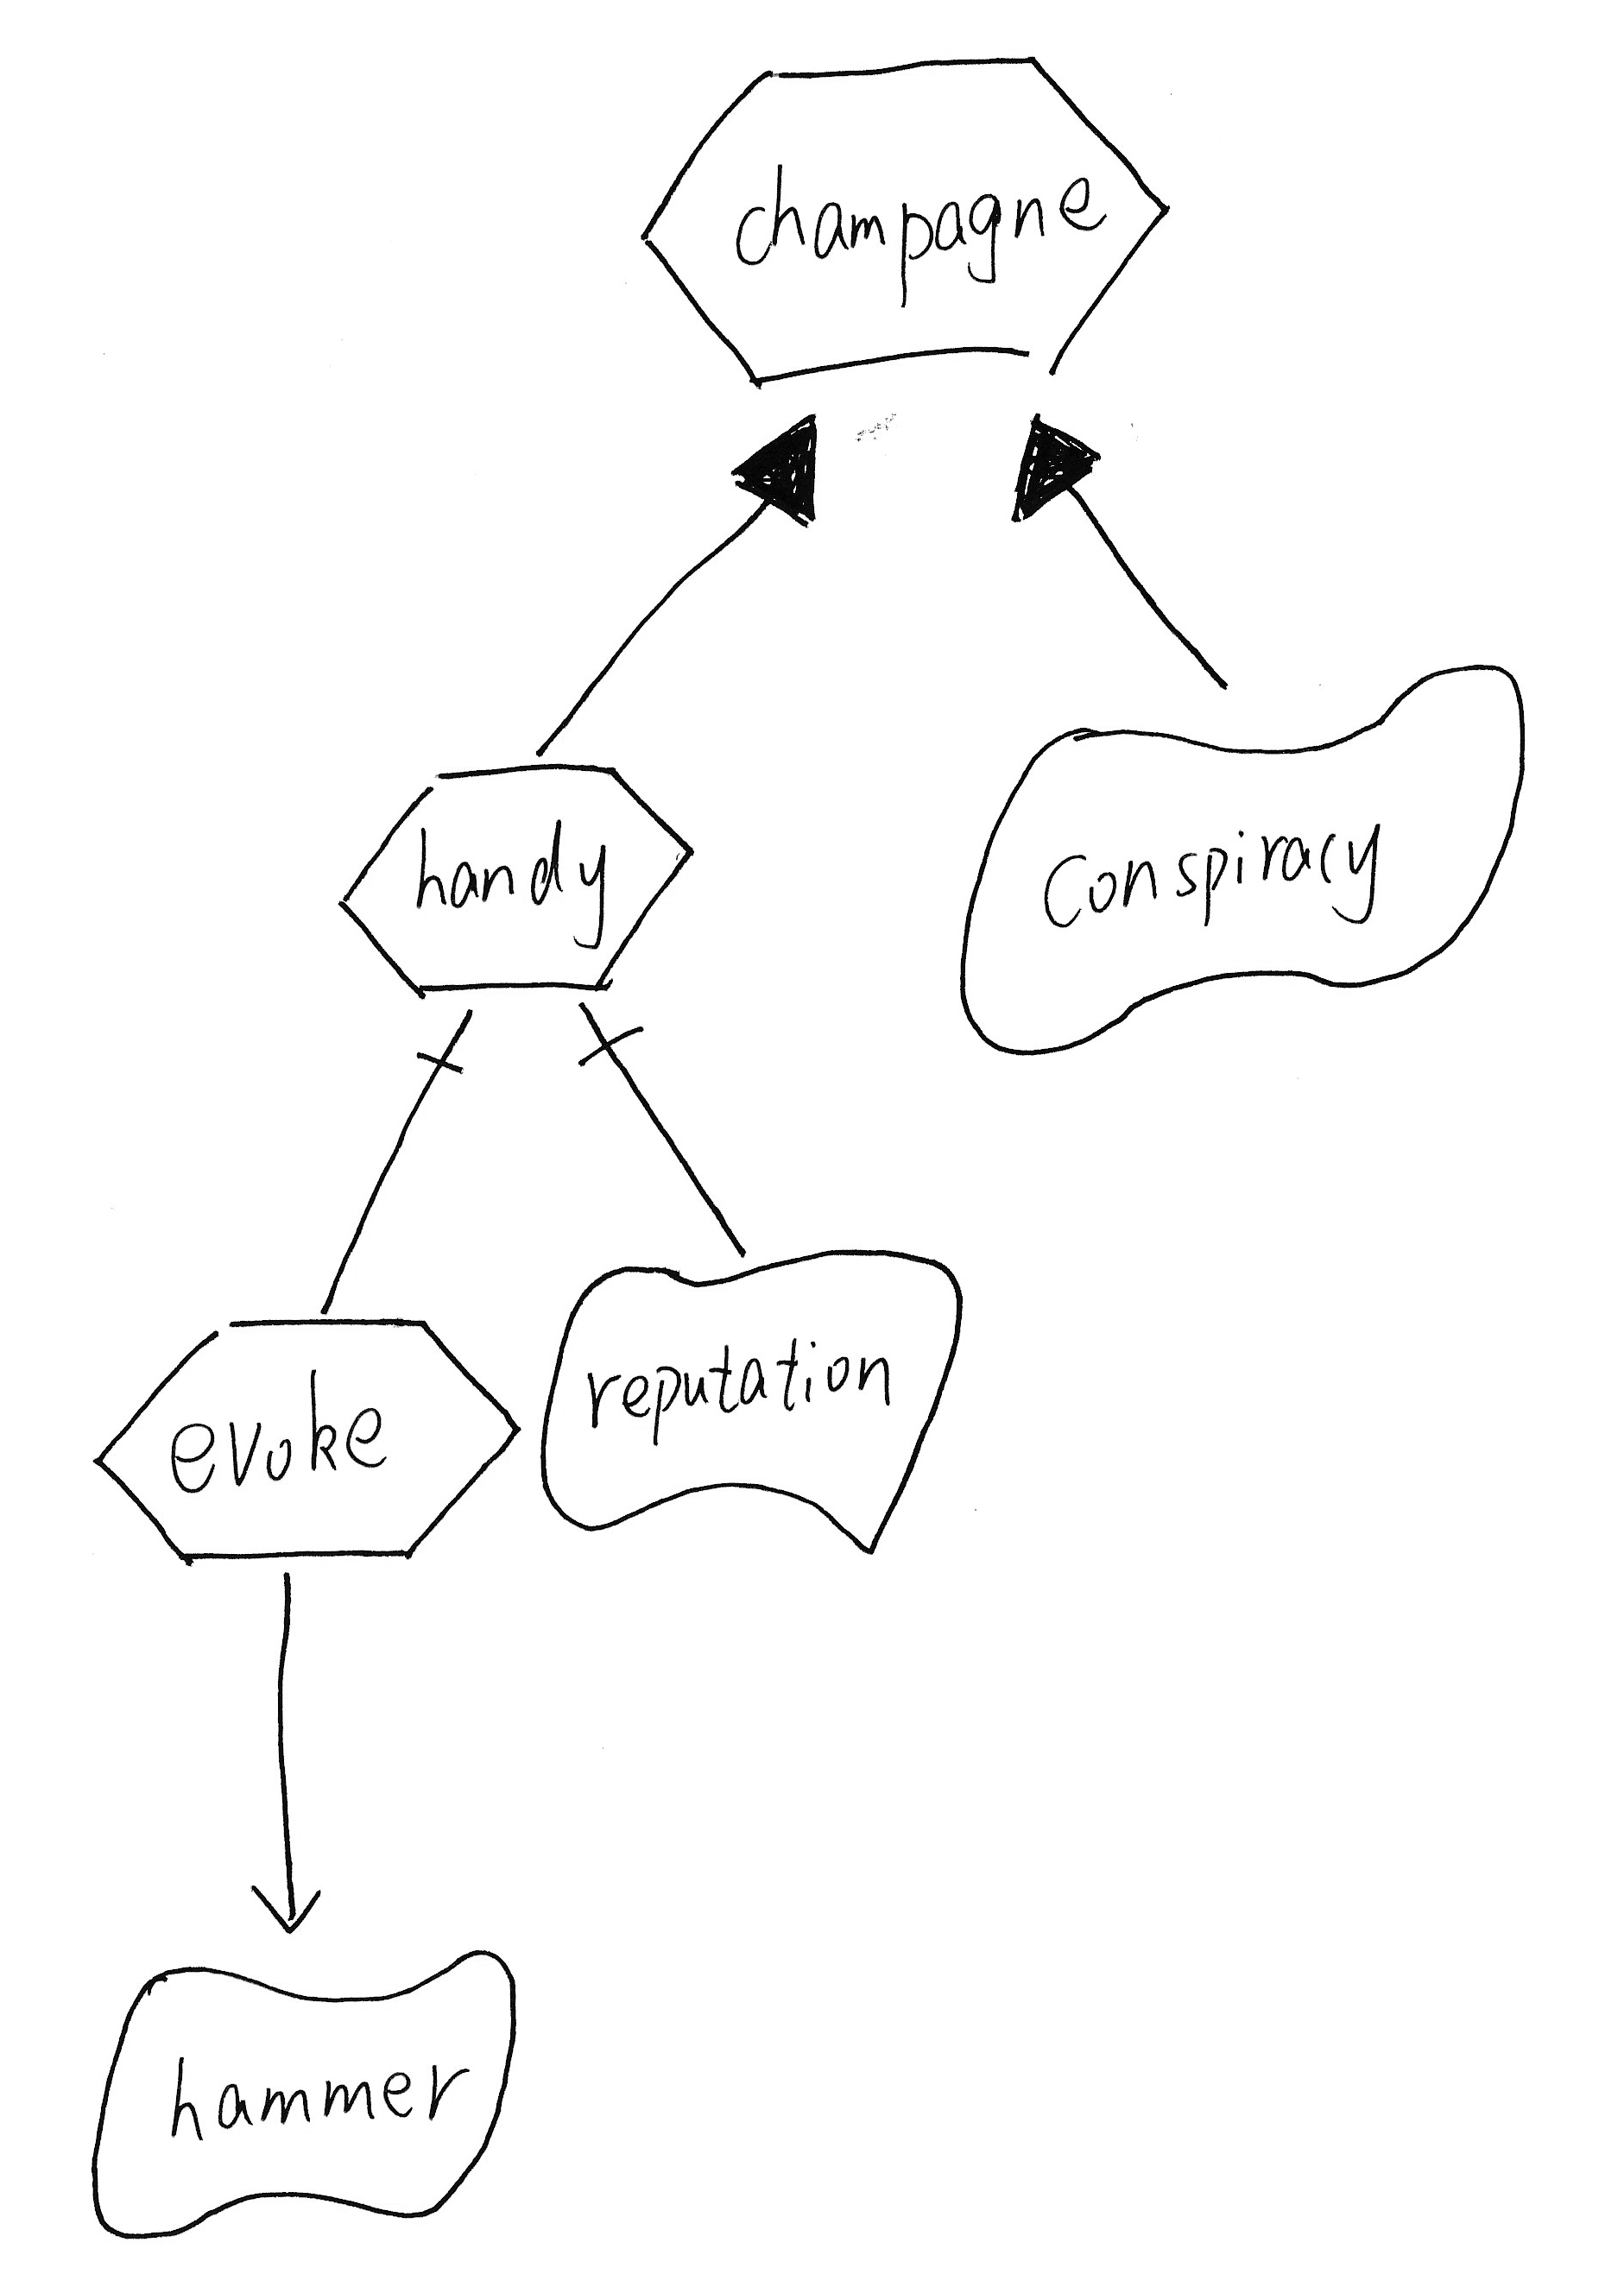 champagne
handy
conspiracy
evoke
reputation
hammer